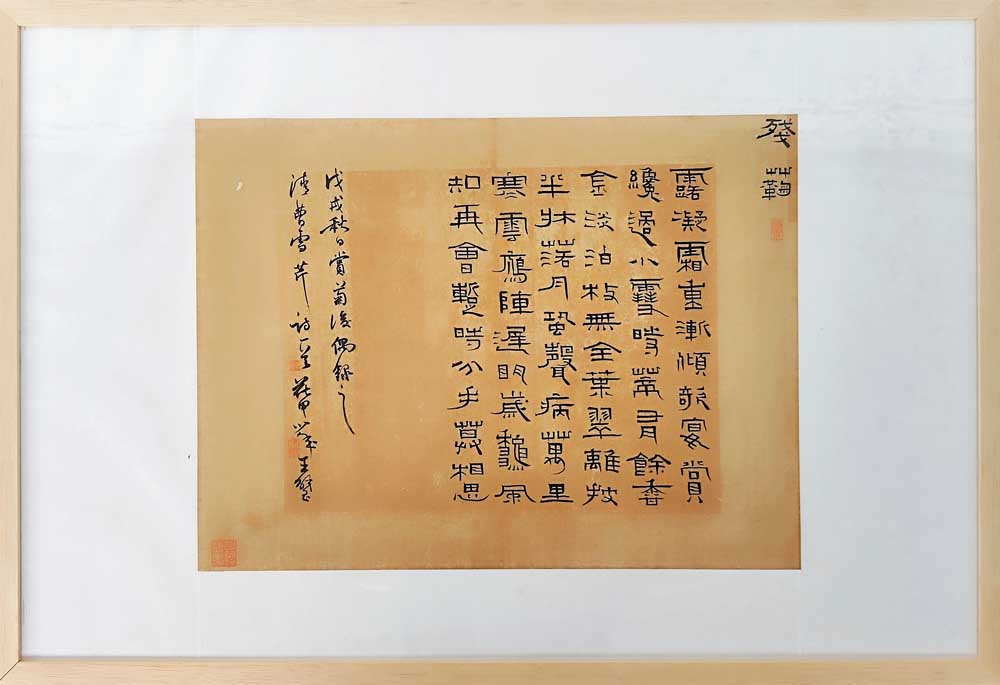 殘蘜
露凝霜重漸傾欹宴賞
纔過小雪時蒂有餘香
金淡泊枝無全葉翠離披
半牀落月蛩聲病萬里
寒雲鴈陣遲朙歲龝風
知再會蹔時分手莫相思
戊戌秋日賞菊後偶錄之
清曹雪芹詩一首